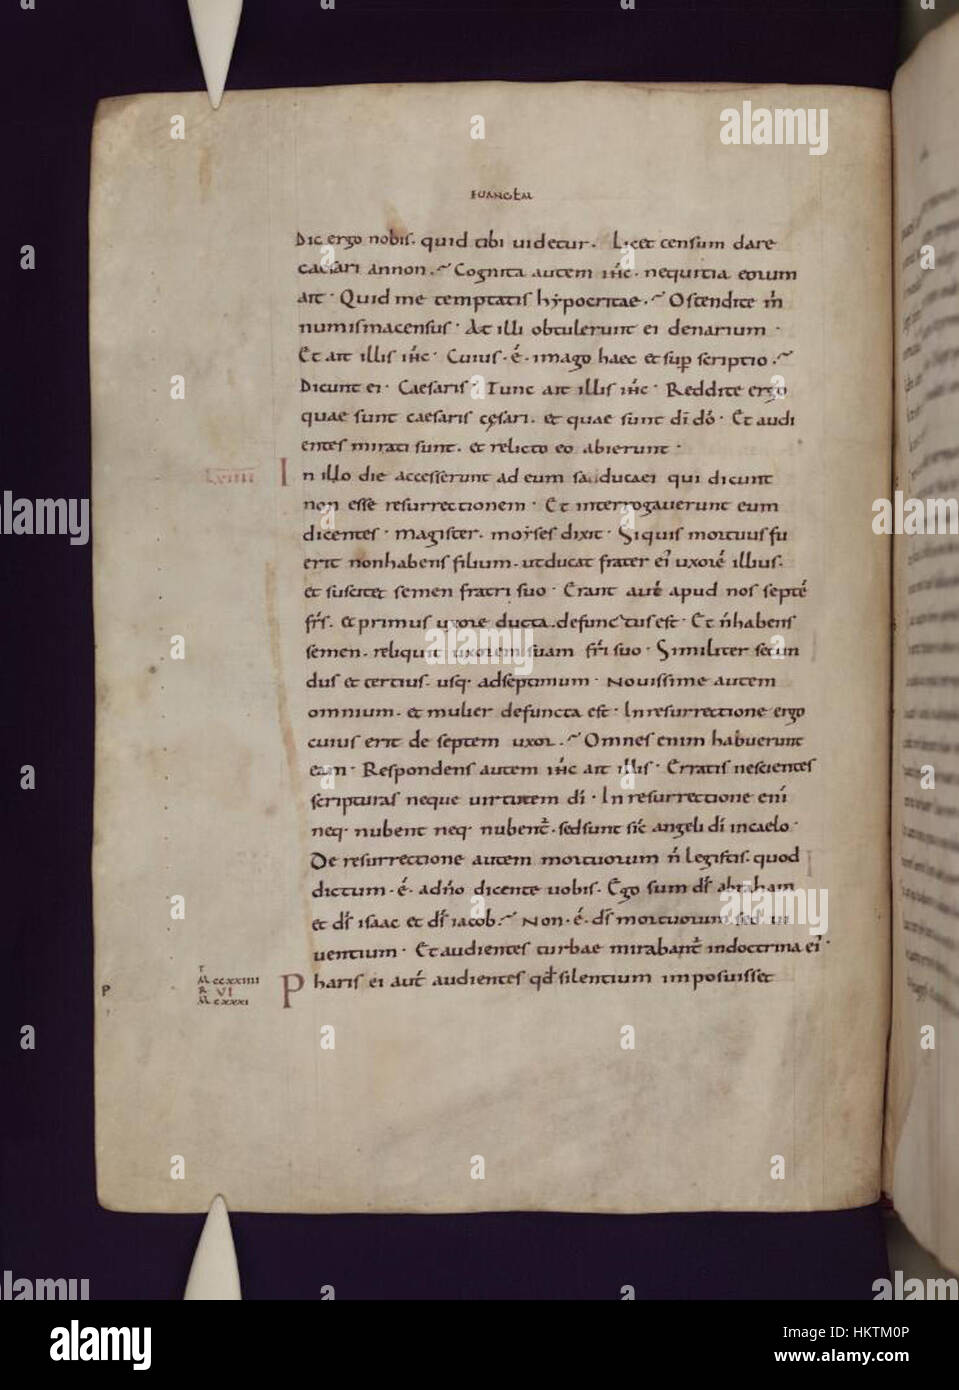 EUANGƗM
Dic ergo nobis. quid tibi uidetur. Licet censum dare
caesari annon. Cognita autem ihc. nequitia eorum
ait. Quid me temptatis hẏpocritae. Ostendite m̄
numismacensus. At illi obtulerunt ei denarium.
Et ait illis ihc. Cuius. ē. imago haec et sup scriptio.
Dicunt ei. Caesaris. Tunc ait illis ihc. Reddite ergo
quae sunt caesaris cęsari. et quae sunt dī dō. Et audi
entes mirati sunt. et relicto eo abierunt.
LXVIIII In illo die accesserunt ad eum sadducaei qui dicunt
non esse resurrectionem. Et interrogauerunt eum
dicentes. Magister. moẏses dixit. Siquis mortuus fu
erit nonhabens filium. utducat frater ei' uxorē illius.
et suscitet semen fratri suo. Erant autē apud nos septē
frs̄. et primus uxore ducta. defunctus est. Et n̄habens
semen. reliquit uxorem suam fr̄i suo. Similiter secun
dus et tertius. usq. adseptimum. Nouissime autem
omnium. et mulier defuncta est. Inresurrectione ergo
cuius erit de septem uxor. Omnes enim habuerunt
eam. Respondens autem ihc ait illis. Erratis nescientes
scripturas neque uirtutem dī. Inresurrectione enī
neq. nubent neq. nubent̄. sedsunt sic̄ angeli dī incaelo.
De resurrectione autem mortuorum n̄ legistis. quod
dictum. ē. adn̄o dicente uobis. Ego sum ds̄ abraham
et ds̄ isaac et ds̄ iacob. Non. ē. ds̄ mortuorum. sed ui
uentium. Et audientes turbae mirabant̄ indoctrina ei'.
P
T
M CCXXIIII
R VI
M CXXXI
Pharis ei aut̄ audientes qd̄ silentium imposuisset
alamy
Image ID: HKTM0P
www.alamy.com